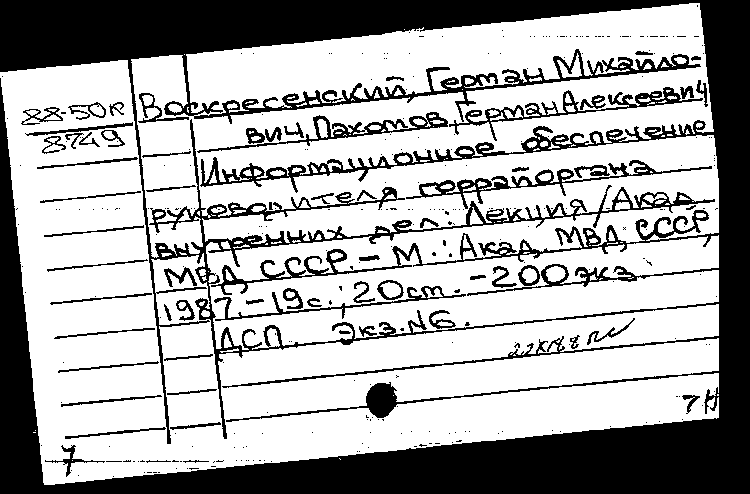 88-50к
8749
Воскресенский, Герман Михайло-
вич, Пахомов, Герман Алексеевич
Информационное обеспечение
руководителя горрайоргана
внутренних дел: Лекция / Акад.
МВД СССР. – М.: Акад. МВД СССР,
1987. – 19 с.; 20 см. – 200 экз.
ДСП. Экз. №6.
7
7Н